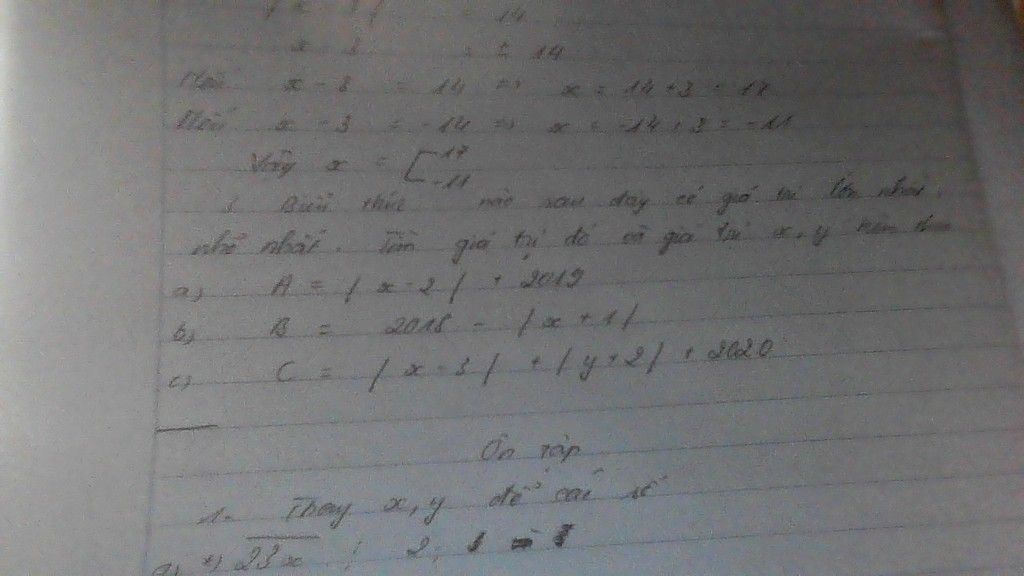 x - 3 | = 14
x - 3 = ± 14
Nếu x - 3 = 14 => x = 14 + 3 = 17
Nếu x - 3 = -14 => x = -14 + 3 = -11
Vậy x = [ 17
-11
Biểu thức nào sau đây có giá trị lớn nhất,
nhỏ nhất. Tìm giá trị đó và giá trị x, y
a, A = | x - 2 | + 2019
b, B = 2018 - | x + 1 |
c, C = | x - 3 | + | y + 2 | + 2020
Ôn tập
1. Thay x, y để các số
a, *) 23x ⋮ 2,